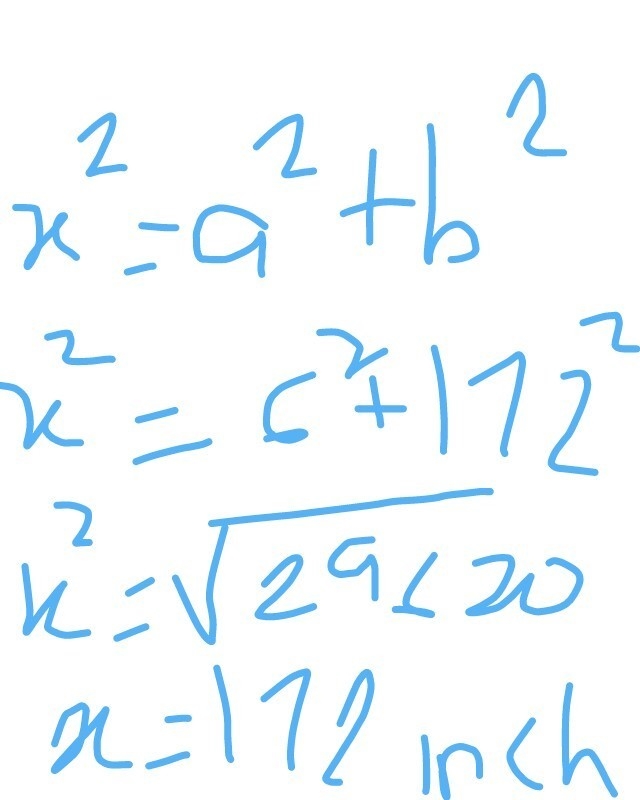 x²=a²+b²
x²=6²+172²
x²=√29620
x=172 inch